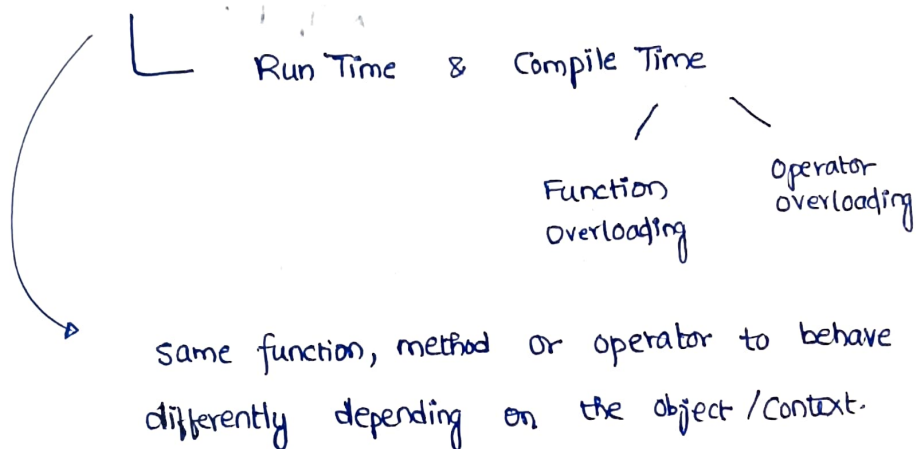 Run Time & Compile Time
Function Overloading
Operator overloading
same function, method or operator to behave
differently depending on the object / Context.